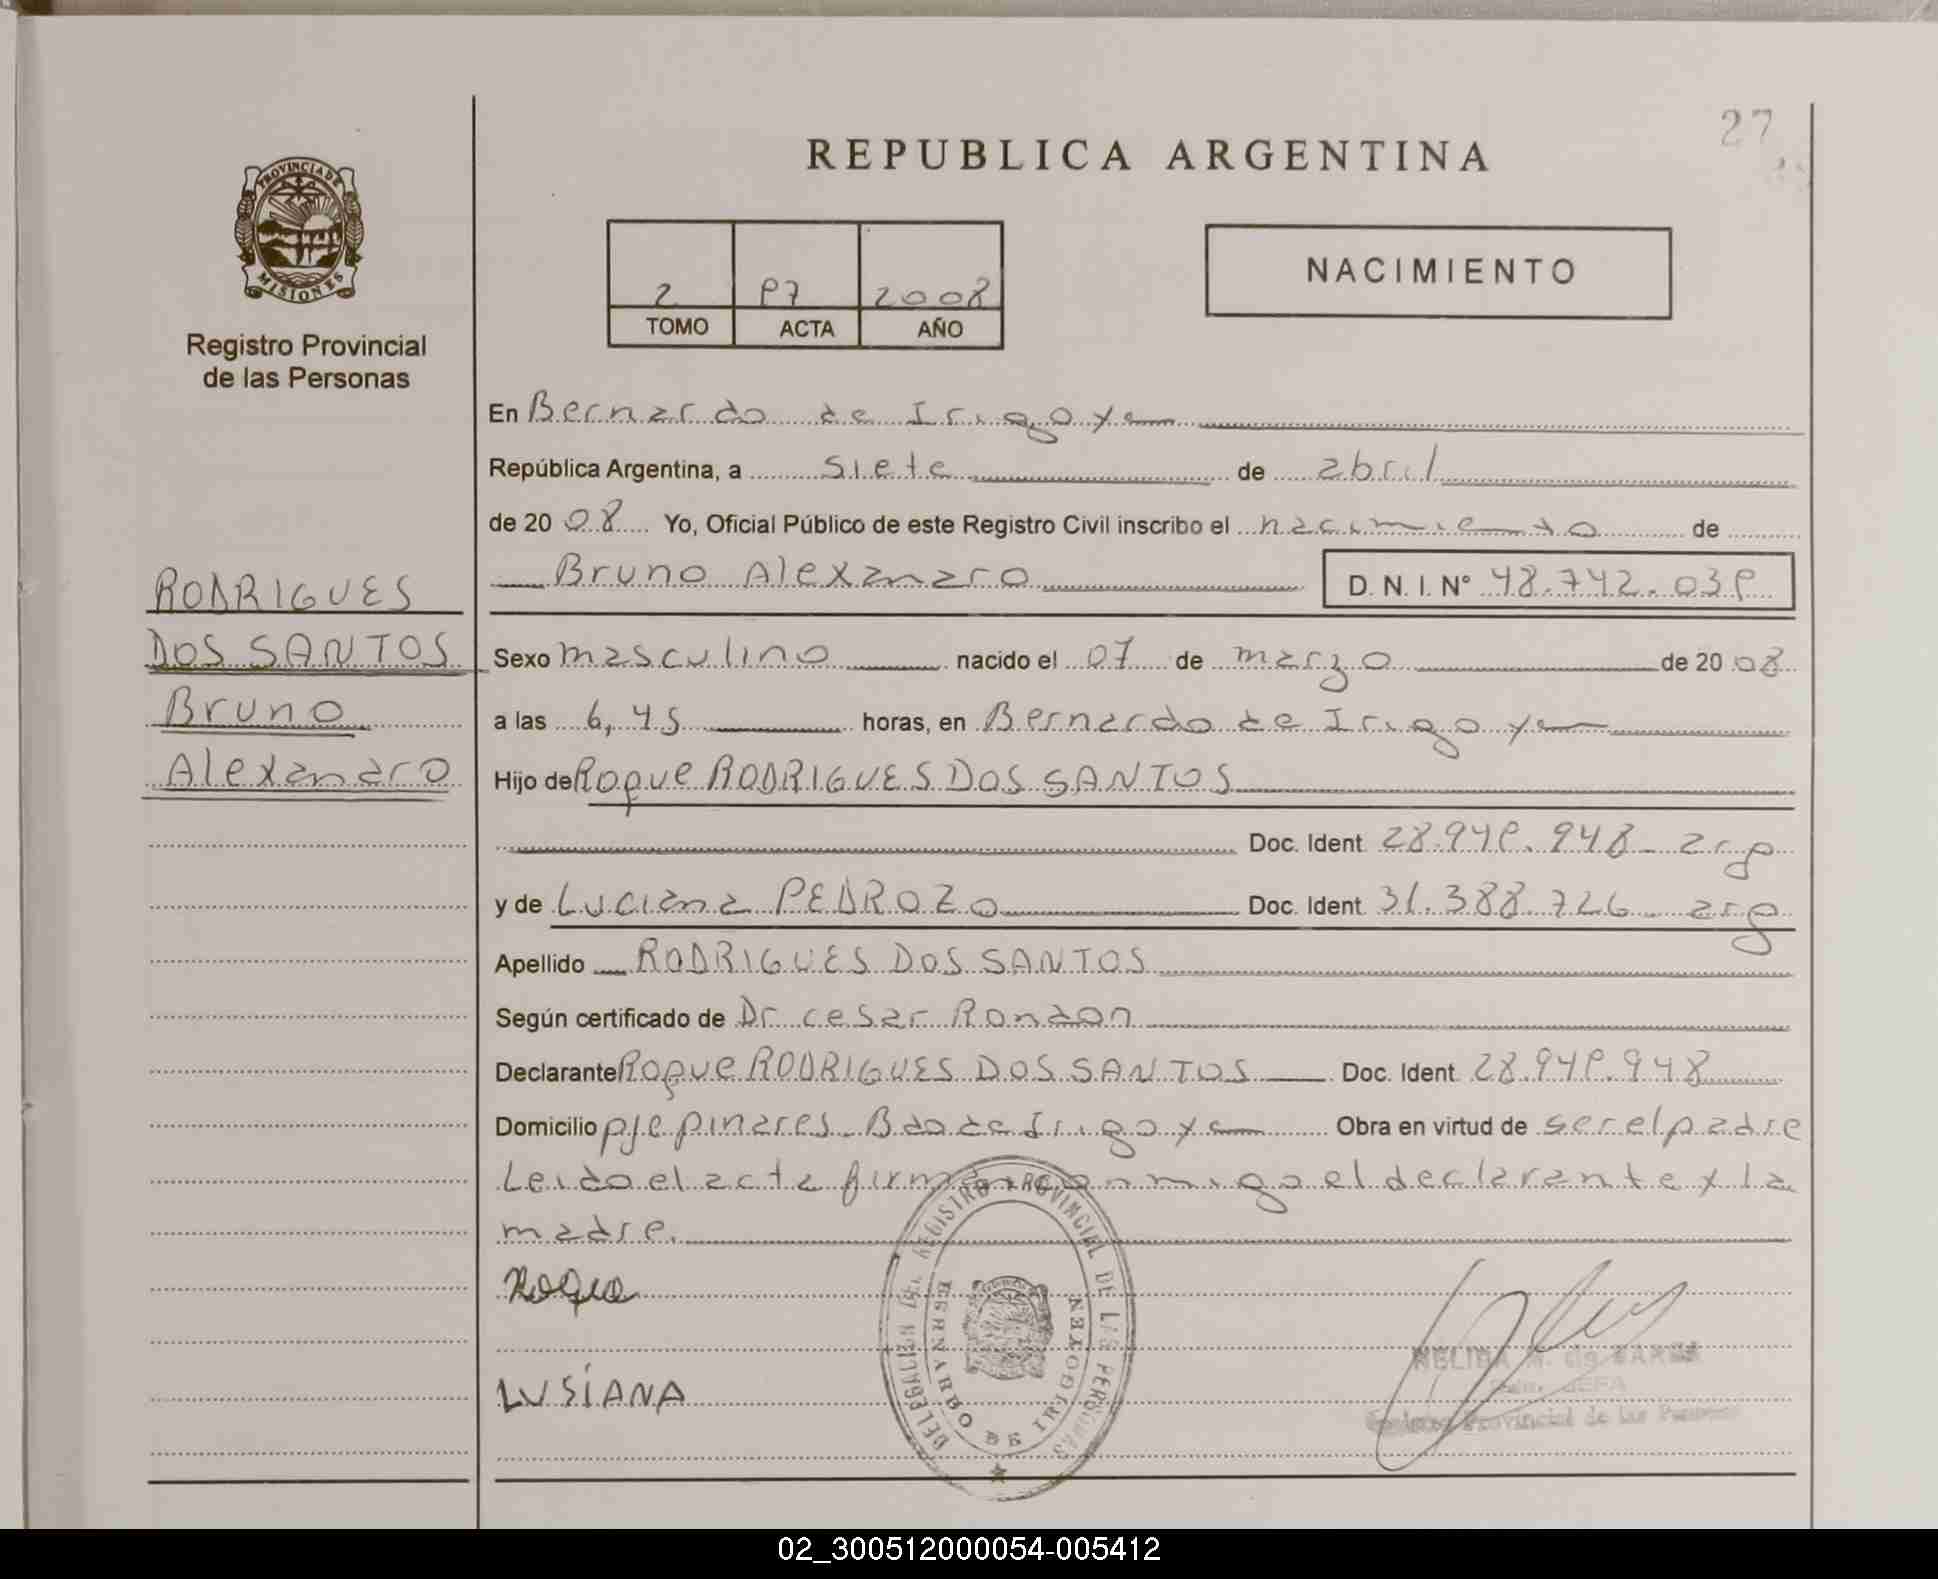 REPUBLICA ARGENTINA
27
PROVINCIA DE
MISIONES
Registro Provincial
de las Personas
2 97 2008
TOMO ACTA AÑO
NACIMIENTO
En Bernardo de Irigoyen
República Argentina, a siete de abril
de 20 08 Yo, Oficial Público de este Registro Civil inscribo el nacimiento de
Bruno Alexandro D. N. I. N° 48.742.039
RODRIGUES
DOS SANTOS
Bruno
Alexandro
Sexo masculino nacido el 07 de marzo de 20 08
a las 6,45 horas, en Bernardo de Irigoyen
Hijo de Roque RODRIGUES DOS SANTOS
Doc. Ident 28.949.948 - arg
y de Luciana PEDROZO Doc. Ident 31.388.726 - arg
Apellido RODRIGUES DOS SANTOS
Según certificado de Dr cesar Rondon
Declarante Roque RODRIGUES DOS SANTOS Doc. Ident 28.949.948
Domicilio pje pinares - Bdo de Irigoyen Obra en virtud de ser el padre
Leido el acta firman conmigo el declarante y la
madre.
Roque
LUSIANA
DELEGACION DEL REGISTRO PROVINCIAL DE LAS PERSONAS
BERNARDO DE IRIGOYEN
NELIDA
JEFA
Provincial de las Personas
02_300512000054-005412